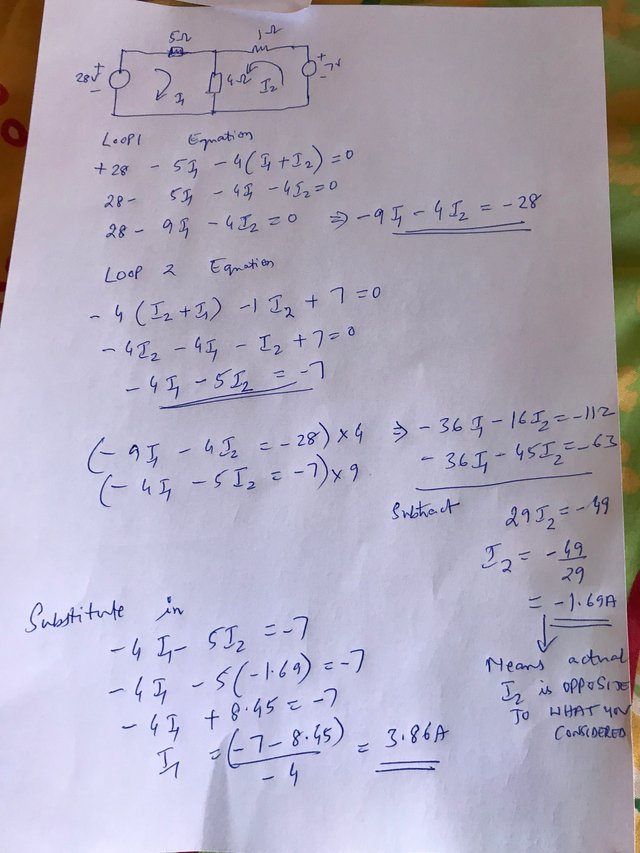 5Ω 1Ω
28V + - I₁ 4Ω I₂ + - 7V
LOOP1 Equation
+28 - 5I₁ - 4(I₁+I₂)=0
28- 5I₁ - 4I₁ - 4I₂=0
28 - 9I₁ - 4I₂ = 0 ⇒ -9I₁ - 4I₂ = -28
LOOP 2 Equation
- 4(I₂+I₁) - 1 I₂ + 7 = 0
- 4I₂ - 4I₁ - I₂ + 7 = 0
- 4I₁ - 5I₂ = -7
(- 9I₁ - 4I₂ = -28) × 4 ⇒ - 36I₁ - 16I₂ = -112
(- 4I₁ - 5I₂ = -7) × 9 - 36I₁ - 45I₂ = -63
Subtract 29I₂ = -49
I₂ = -49/29
= -1.69A
Means actual
I₂ is OPPOSITE
TO WHAT YOU
CONSIDERED
Substitute in
-4I₁ - 5I₂ = -7
-4I₁ - 5(-1.69) = -7
-4I₁ + 8.45 = -7
I₁ = (-7-8.45)/-4 = 3.86A